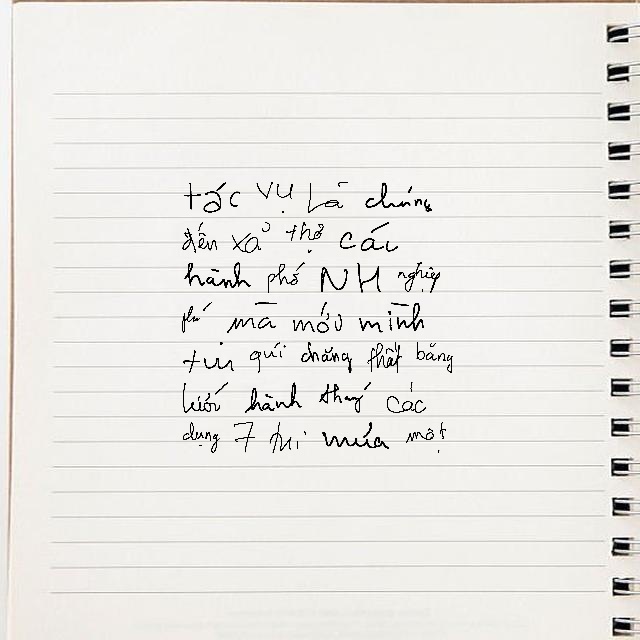 tốc vụ Là chúng
đến xả thợ cái
hành phố NH nghiệp
phú mà mới mình
tui quí chăng thất băng
lưới hành thay các
dụng 7 tui múa một